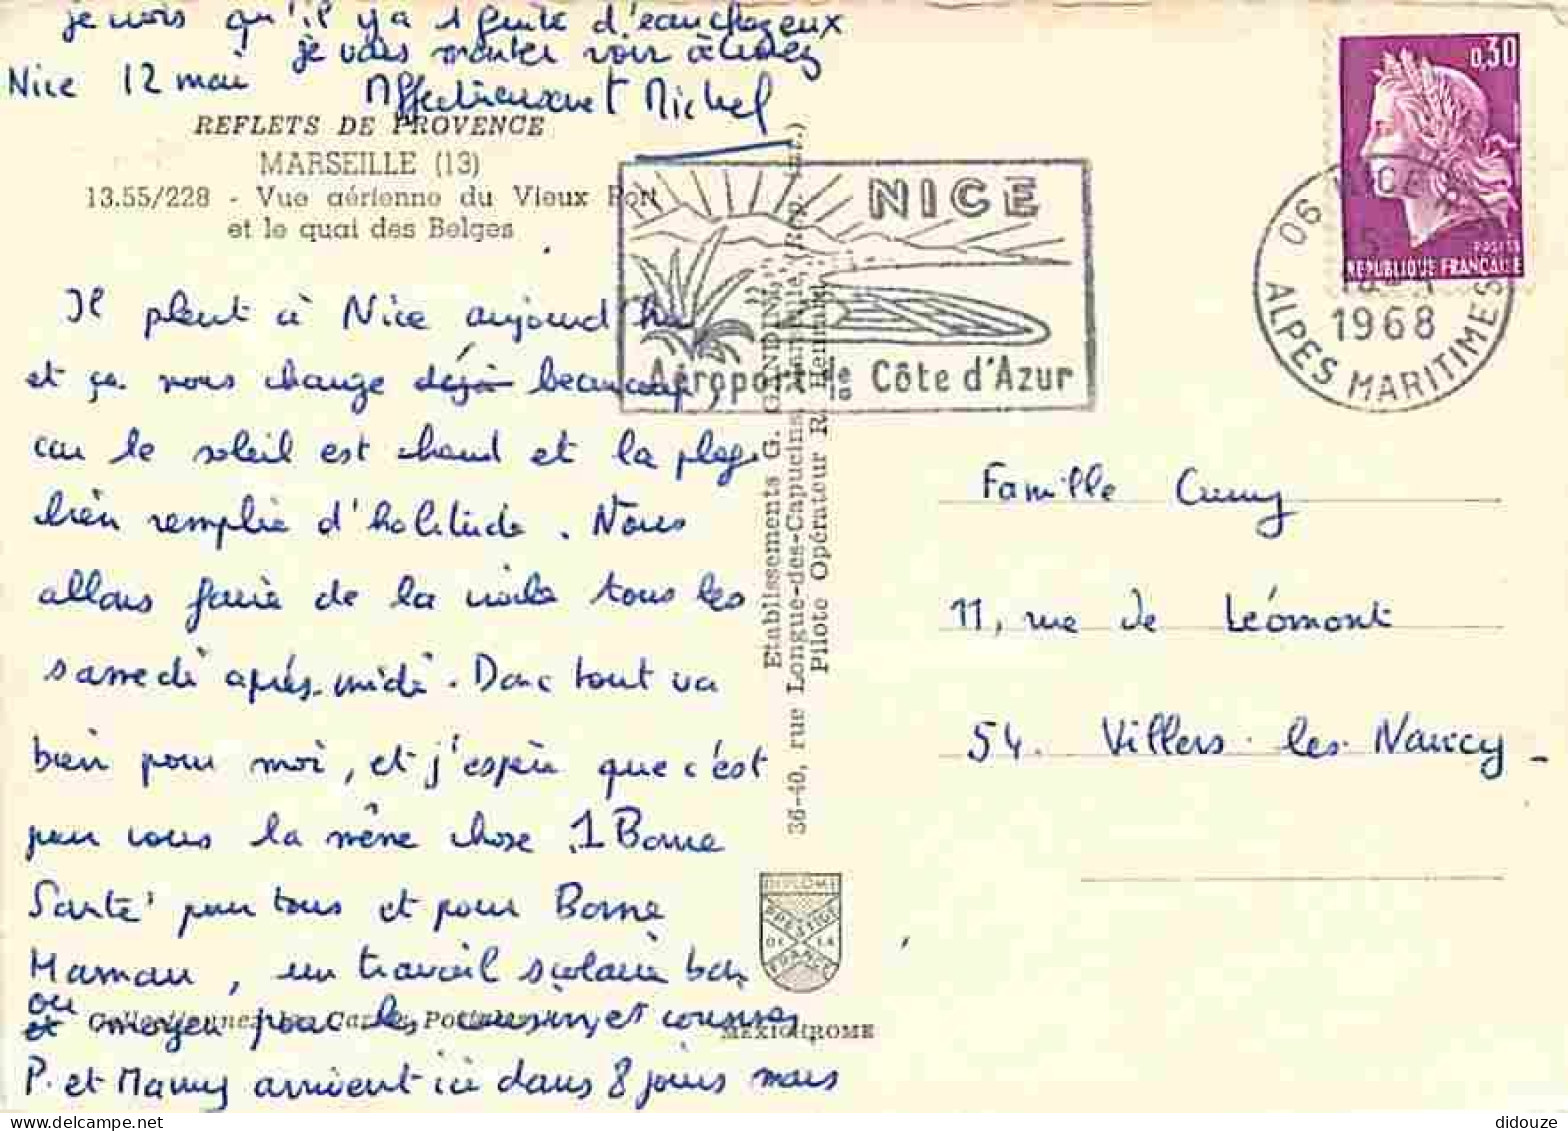 je vois qu'il y a 1 fuite d'eau chez eux
je vais monter voir
Nice 12 mai
Affectueusement Michel
REFLETS DE PROVENCE
MARSEILLE (13)
13.55/228 - Vue aérienne du Vieux Port
et le quai des Belges
Il pleut à Nice aujourd'hui
et ça nous change déjà beaucoup,
car le soleil est chaud et la plage
bien remplie d'habitude. Nous
allons faire de la voile tous les
samedi après-midi. Donc tout va
bien pour moi, et j'espère que c'est
pour vous la même chose. 1 Bonne
Santé pour tous et pour Bonne
Maman, un travail scolaire bon
ou
et moyen pour les cousins et cousines
P. et Mamy arrivent ici dans 8 jours mais
Collectionnez les Cartes Postales
MEXICHROME
DIPLOME
PRESTIGE
DE LA
FRANCE
Etablissements G. GANDINI
36-40, rue Longue-des-Capucins, Marseille (Rep. Int.)
Pilote Opérateur R. Henrard
NICE
Aéroport de la Côte d'Azur
0,30
POSTES
REPUBLIQUE FRANCAISE
06 NICE
1968
ALPES MARITIMES
Famille Cuny
11, rue de Léomont
54. Villers-les-Nancy -
didouze